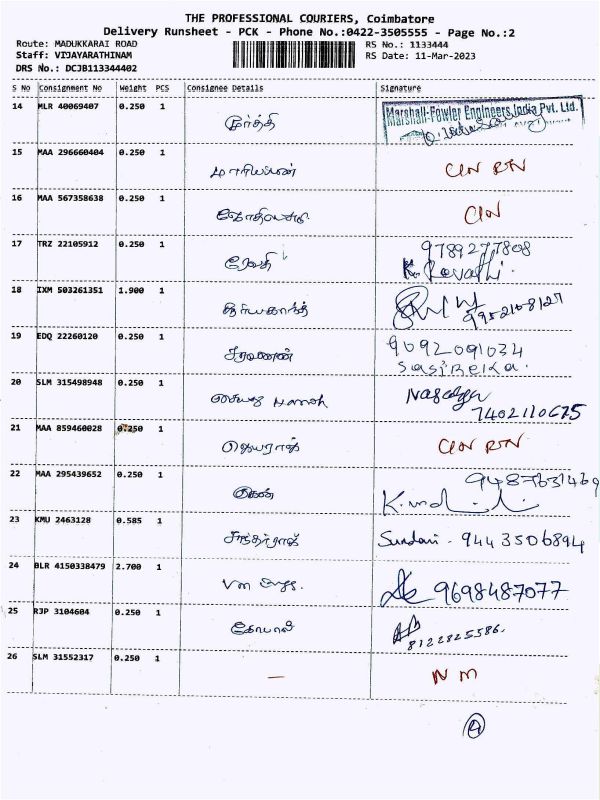 THE PROFESSIONAL COURIERS, Coimbatore
Delivery Runsheet - PCK - Phone No.:0422-3505555 - Page No.:2
Route: MADUKKARAI ROAD RS No.: 1133444
Staff: VIJAYARATHINAM RS Date: 11-Mar-2023
DRS No.: DCJB113344402
S No Consignment No Weight PCS Consignee Details Signature
14 MLR 40069407 0.250 1 கீர்த்தி Marshall-Fowler Engineers India Pvt. Ltd.
15 MAA 296660404 0.250 1 மாரியப்பன் C/N R/N
16 MAA 567358638 0.250 1 C/N
17 TRZ 22105912 0.250 1 ரேவதி 9789277808
K. Revathi.
18 IXM 503261351 1.900 1 சூரியகாந்த் 9952108127
19 EDQ 22260120 0.250 1 சரவணன் 9092091034
Sasireka.
20 SLM 315498948 0.250 1 7402110675
21 MAA 859460028 0.250 1 ஜெயராஜ் C/N R/N
22 MAA 295439652 0.250 1 9487631469
23 KMU 2463128 0.585 1 Sundari - 9443506894
24 BLR 4150338479 2.700 1 9698487077
25 RJP 3104604 0.250 1 கோபால் 8122825586.
26 SLM 31552317 0.250 1 — N M